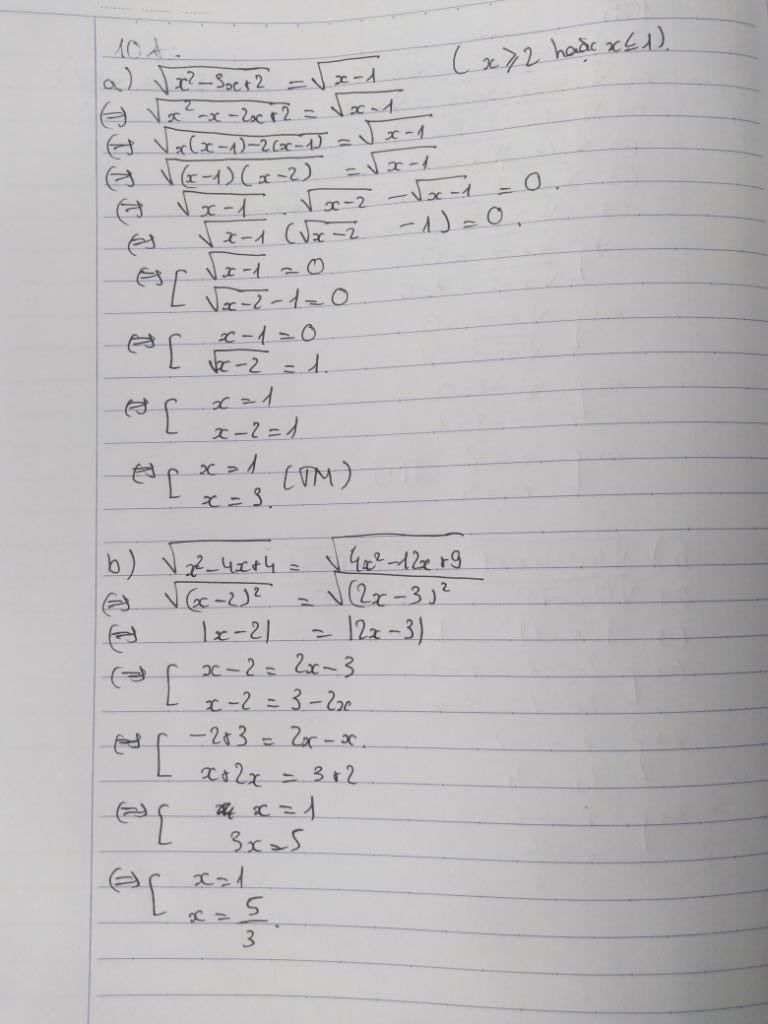 10A.
a) √(x²-3x+2) = √(x-1) (x ⩾ 2 hoặc x ≤ 1).
⇔ √(x²-x-2x+2) = √(x-1)
⇔ √(x(x-1)-2(x-1)) = √(x-1)
⇔ √((x-1)(x-2)) = √(x-1)
⇔ √(x-1) . √(x-2) - √(x-1) = 0.
⇔ √(x-1) (√(x-2) - 1) = 0.
⇔ [ √(x-1) = 0
√(x-2) - 1 = 0
⇔ [ x-1 = 0
√(x-2) = 1.
⇔ [ x = 1
x-2 = 1
⇔ [ x = 1 (TM)
x = 3.
b) √(x²-4x+4) = √(4x²-12x+9)
⇔ √((x-2)²) = √((2x-3)²)
⇔ |x-2| = |2x-3|
⇔ [ x-2 = 2x-3
x-2 = 3-2x
⇔ [ -2+3 = 2x-x.
x+2x = 3+2
⇔ [ x = 1
3x = 5
⇔ [ x = 1
x = 5/3.